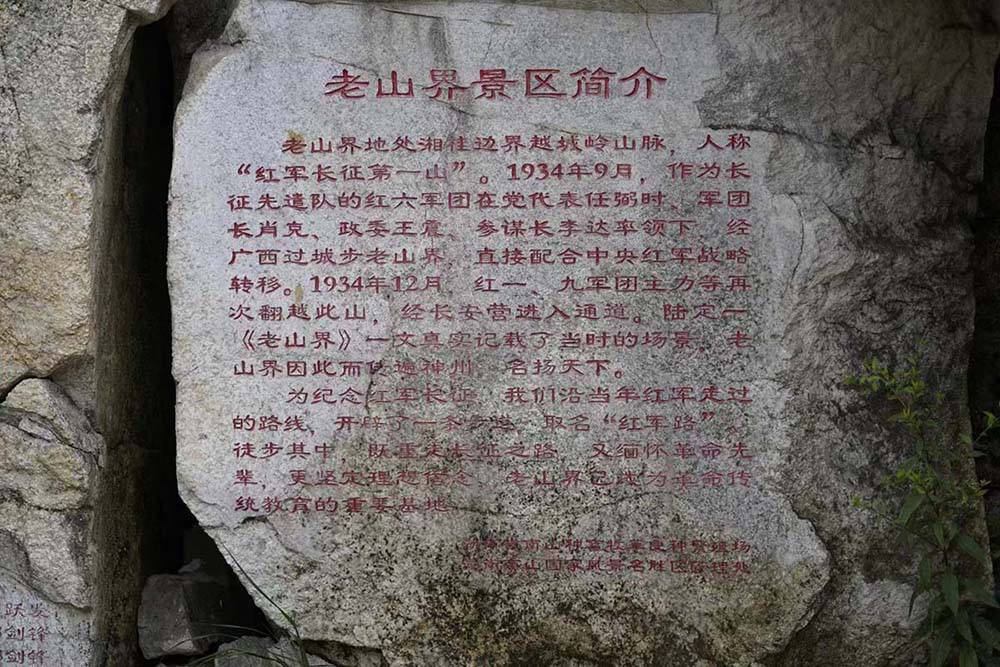 老山界景区简介
老山界地处湘桂边界越城岭山脉，人称
“红军长征第一山”。1934年9月，作为长
征先遣队的红六军团在党代表任弼时、军团
长肖克、政委王震、参谋长李达率领下 经
广西过城步老山界，直接配合中央红军战略
转移。1934年12月 红一、九军团主力等再
次翻越此山，经长安营进入通道。陆定一
《老山界》一文真实记载了当时的场景，老
山界因此而 遍神州 名扬天下。
为纪念红军长征 我们沿当年红军走过
的路线，开辟了一条 取名“红军路”，
徒步其中，既重走长征之路，又缅怀革命先
辈，更坚定理想信念 老山界已成为革命传
统教育的重要基地
南山 场
南山国家风景名胜区管理处
跃发
剑锋
剑锋